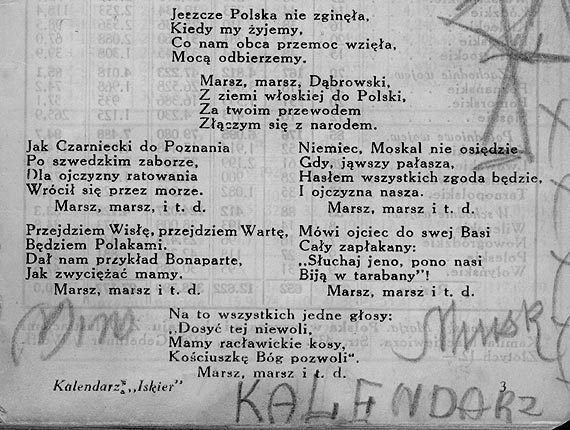 Jeszcze Polska nie zginęła,
Kiedy my żyjemy,
Co nam obca przemoc wzięła,
Mocą odbierzemy.
Marsz, marsz, Dąbrowski,
Z ziemi włoskiej do Polski,
Za twoim przewodem
Złączym się z narodem.
Jak Czarniecki do Poznania
Po szwedzkim zaborze,
Dla ojczyzny ratowania
Wrócił się przez morze.
Marsz, marsz, i t. d.
Przejdziem Wisłę, przejdziem Wartę,
Będziem Polakami..
Dał nam przykład Bonaparte,
Jak zwyciężać mamy.
Marsz, marsz i t. d.
Niemiec, Moskal nie osiędzie
Gdy, jąwszy pałasza,
Hasłem wszystkich zgoda będzie,
I ojczyzna nasza.
Marsz, marsz i t. d.
Mówi ojciec do swej Basi
Cały zapłakany:
„Słuchaj jeno, pono nasi
Biją w tarabany"!
Marsz, marsz i t. d.
Na to wszystkich jedne głosy:
„Dosyć tej niewoli,
Mamy racławickie kosy,
Kościuszkę Bóg pozwoli".
Marsz, marsz i t. d.
Kalendarz „Iskier"
3
KALENDARZ